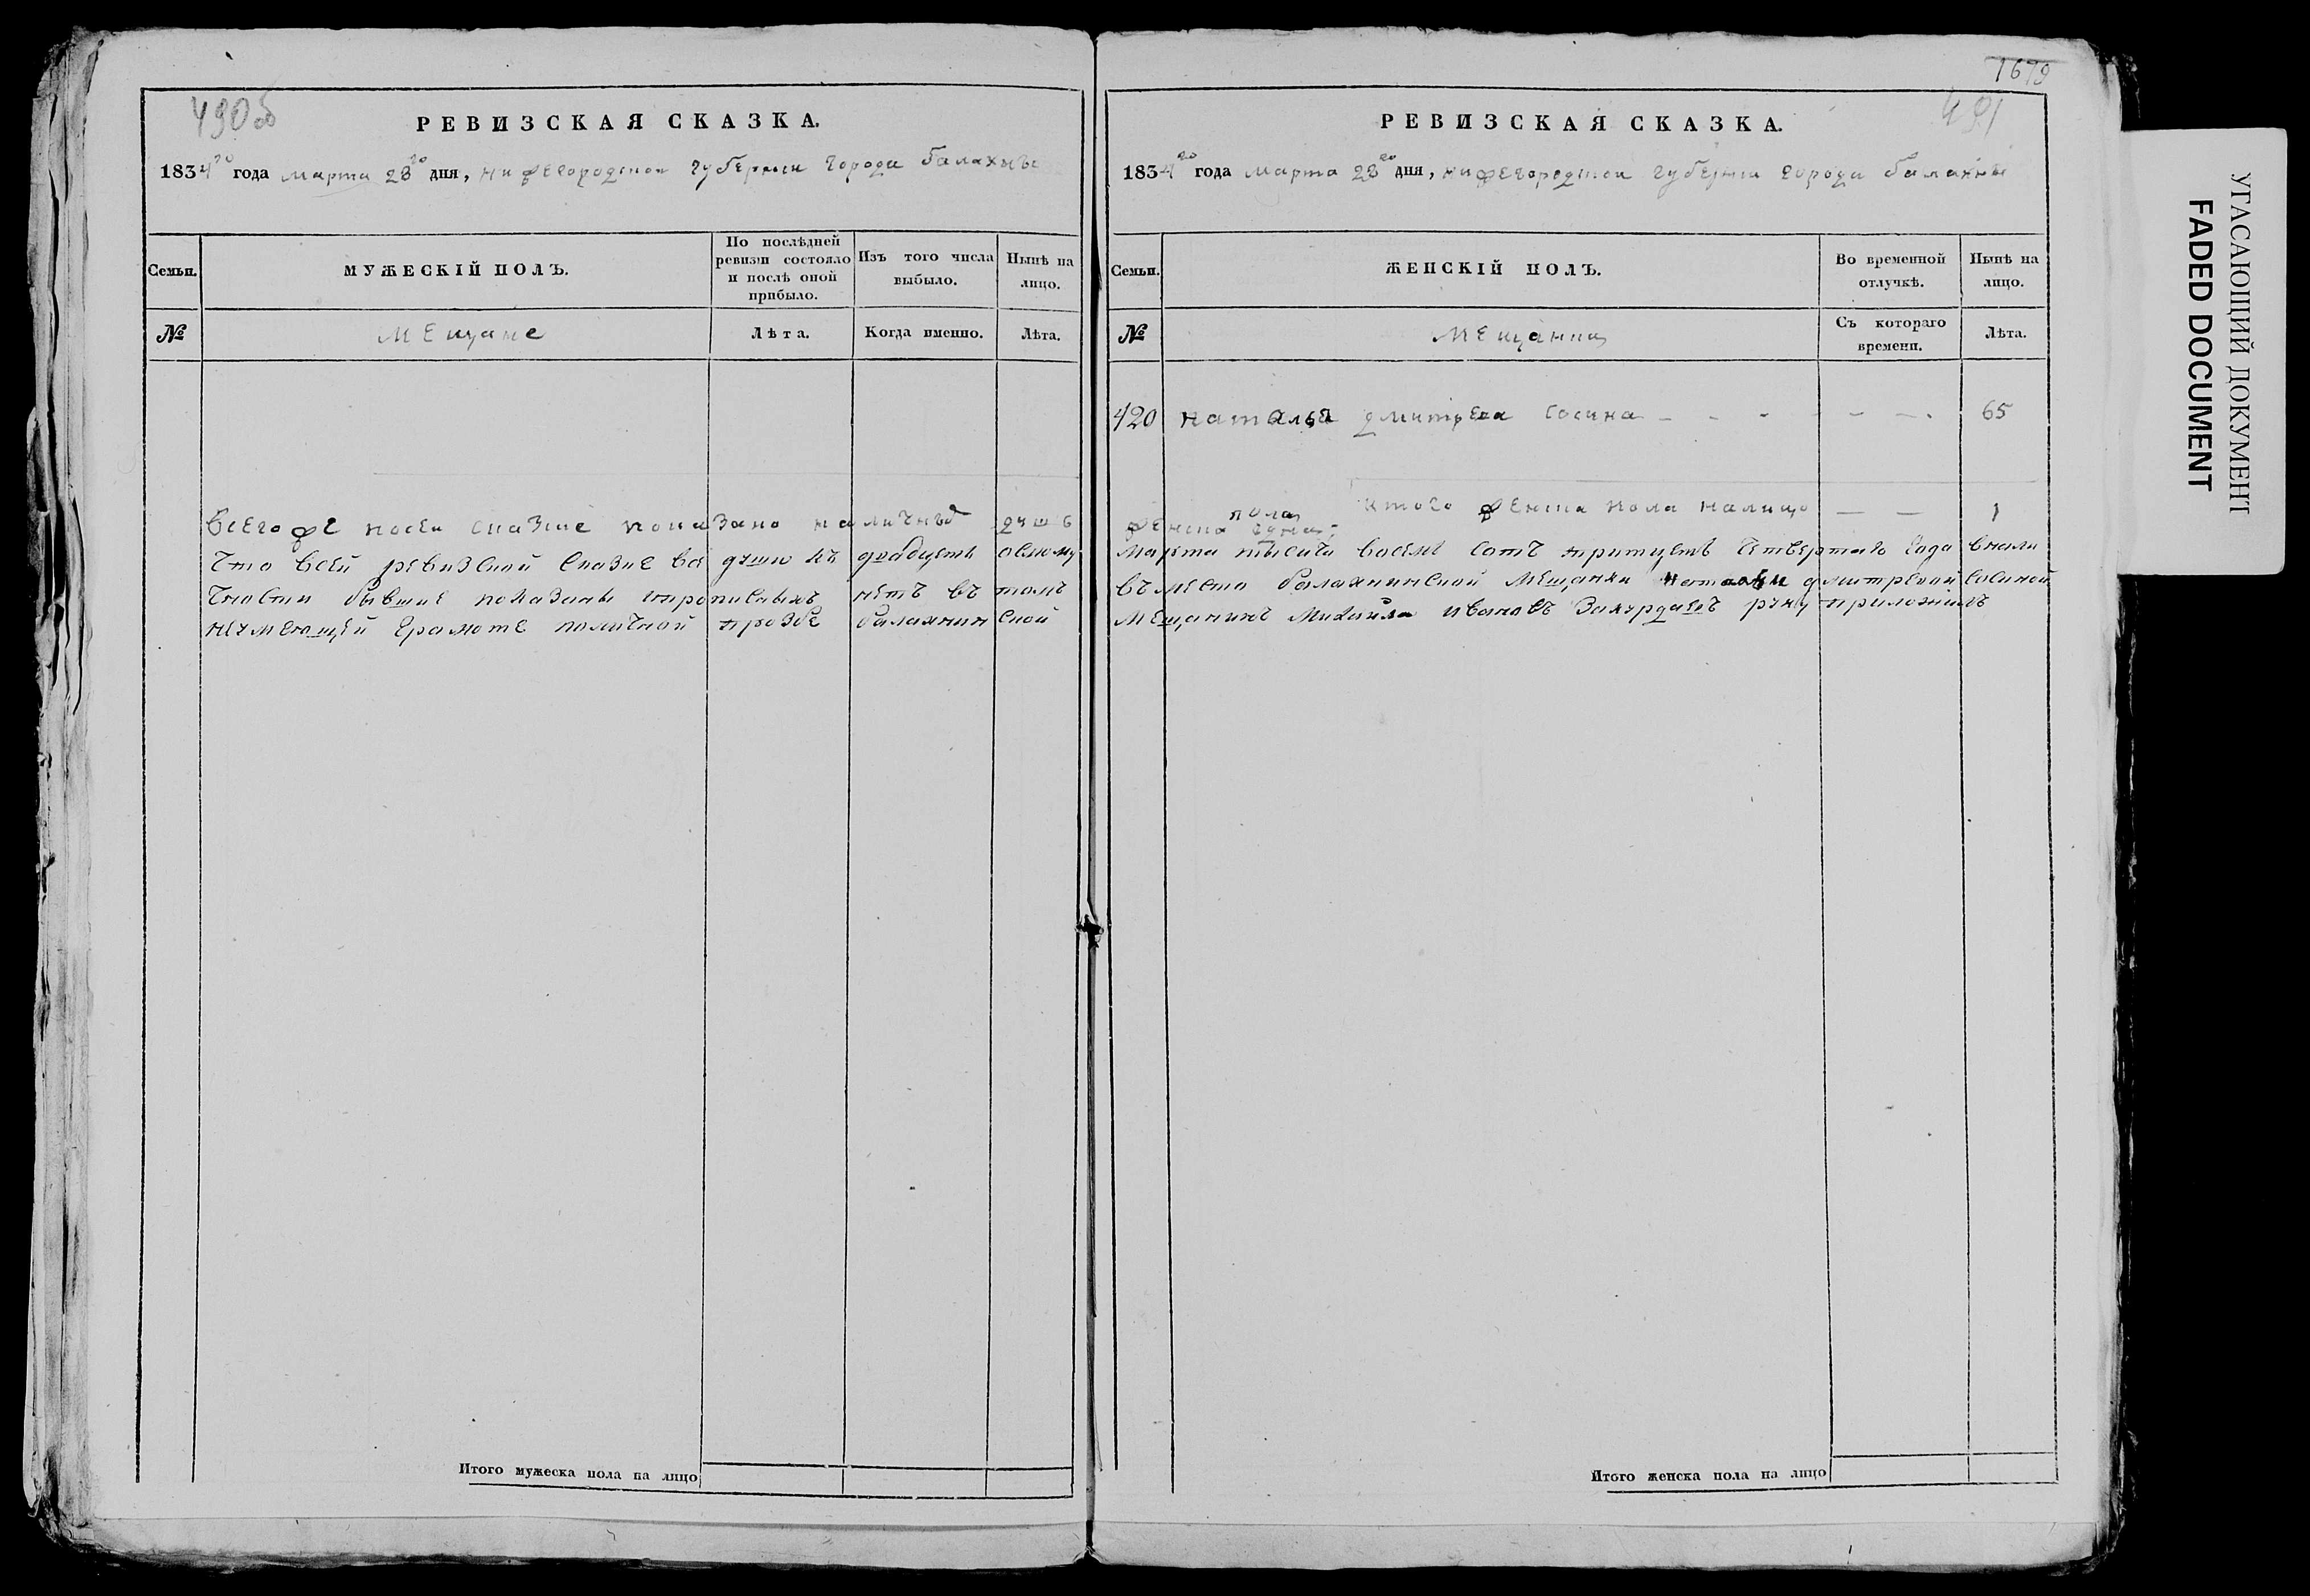 1679
490 об
РЕВИЗСКАЯ СКАЗКА.
1834го года марта 28го дня, нижегородской губернии города балахны
Семьи.
МУЖЕСКІЙ ПОЛЪ.
По послѣдней ревизіи состояло и послѣ оной прибыло.
Изъ того числа выбыло.
Нынѣ на лицо.
№
Мещане
Лѣта.
Когда именно.
Лѣта.
Всего же посеи сказке показано наличныхъ душъ
что всей ревизской сказке все души къ двадцеть осмому
никмеющей грамоте поличной прозбе балахнинской
Итого мужеска пола на лицо
491
РЕВИЗСКАЯ СКАЗКА.
1834го года марта 28го дня, нижегородской губернии города балахны
Семьи.
ЖЕНСКІЙ ПОЛЪ.
Во временной отлучкѣ.
Нынѣ на лицо.
№
Мещанки
Съ котораго времени.
Лѣта.
420 наталья дмитрева сосина 65
итого женска пола налицо 1
женска пола одна
марта тысяча восемь сотъ тритцеть четвертаго года
въместо балахнинской мещанки натальи дмитревой сосиной
мещанинъ михайла ивановъ рук приложилъ
Итого женска пола на лицо
УГАСАЮЩИЙ ДОКУМЕНТ
FADED DOCUMENT